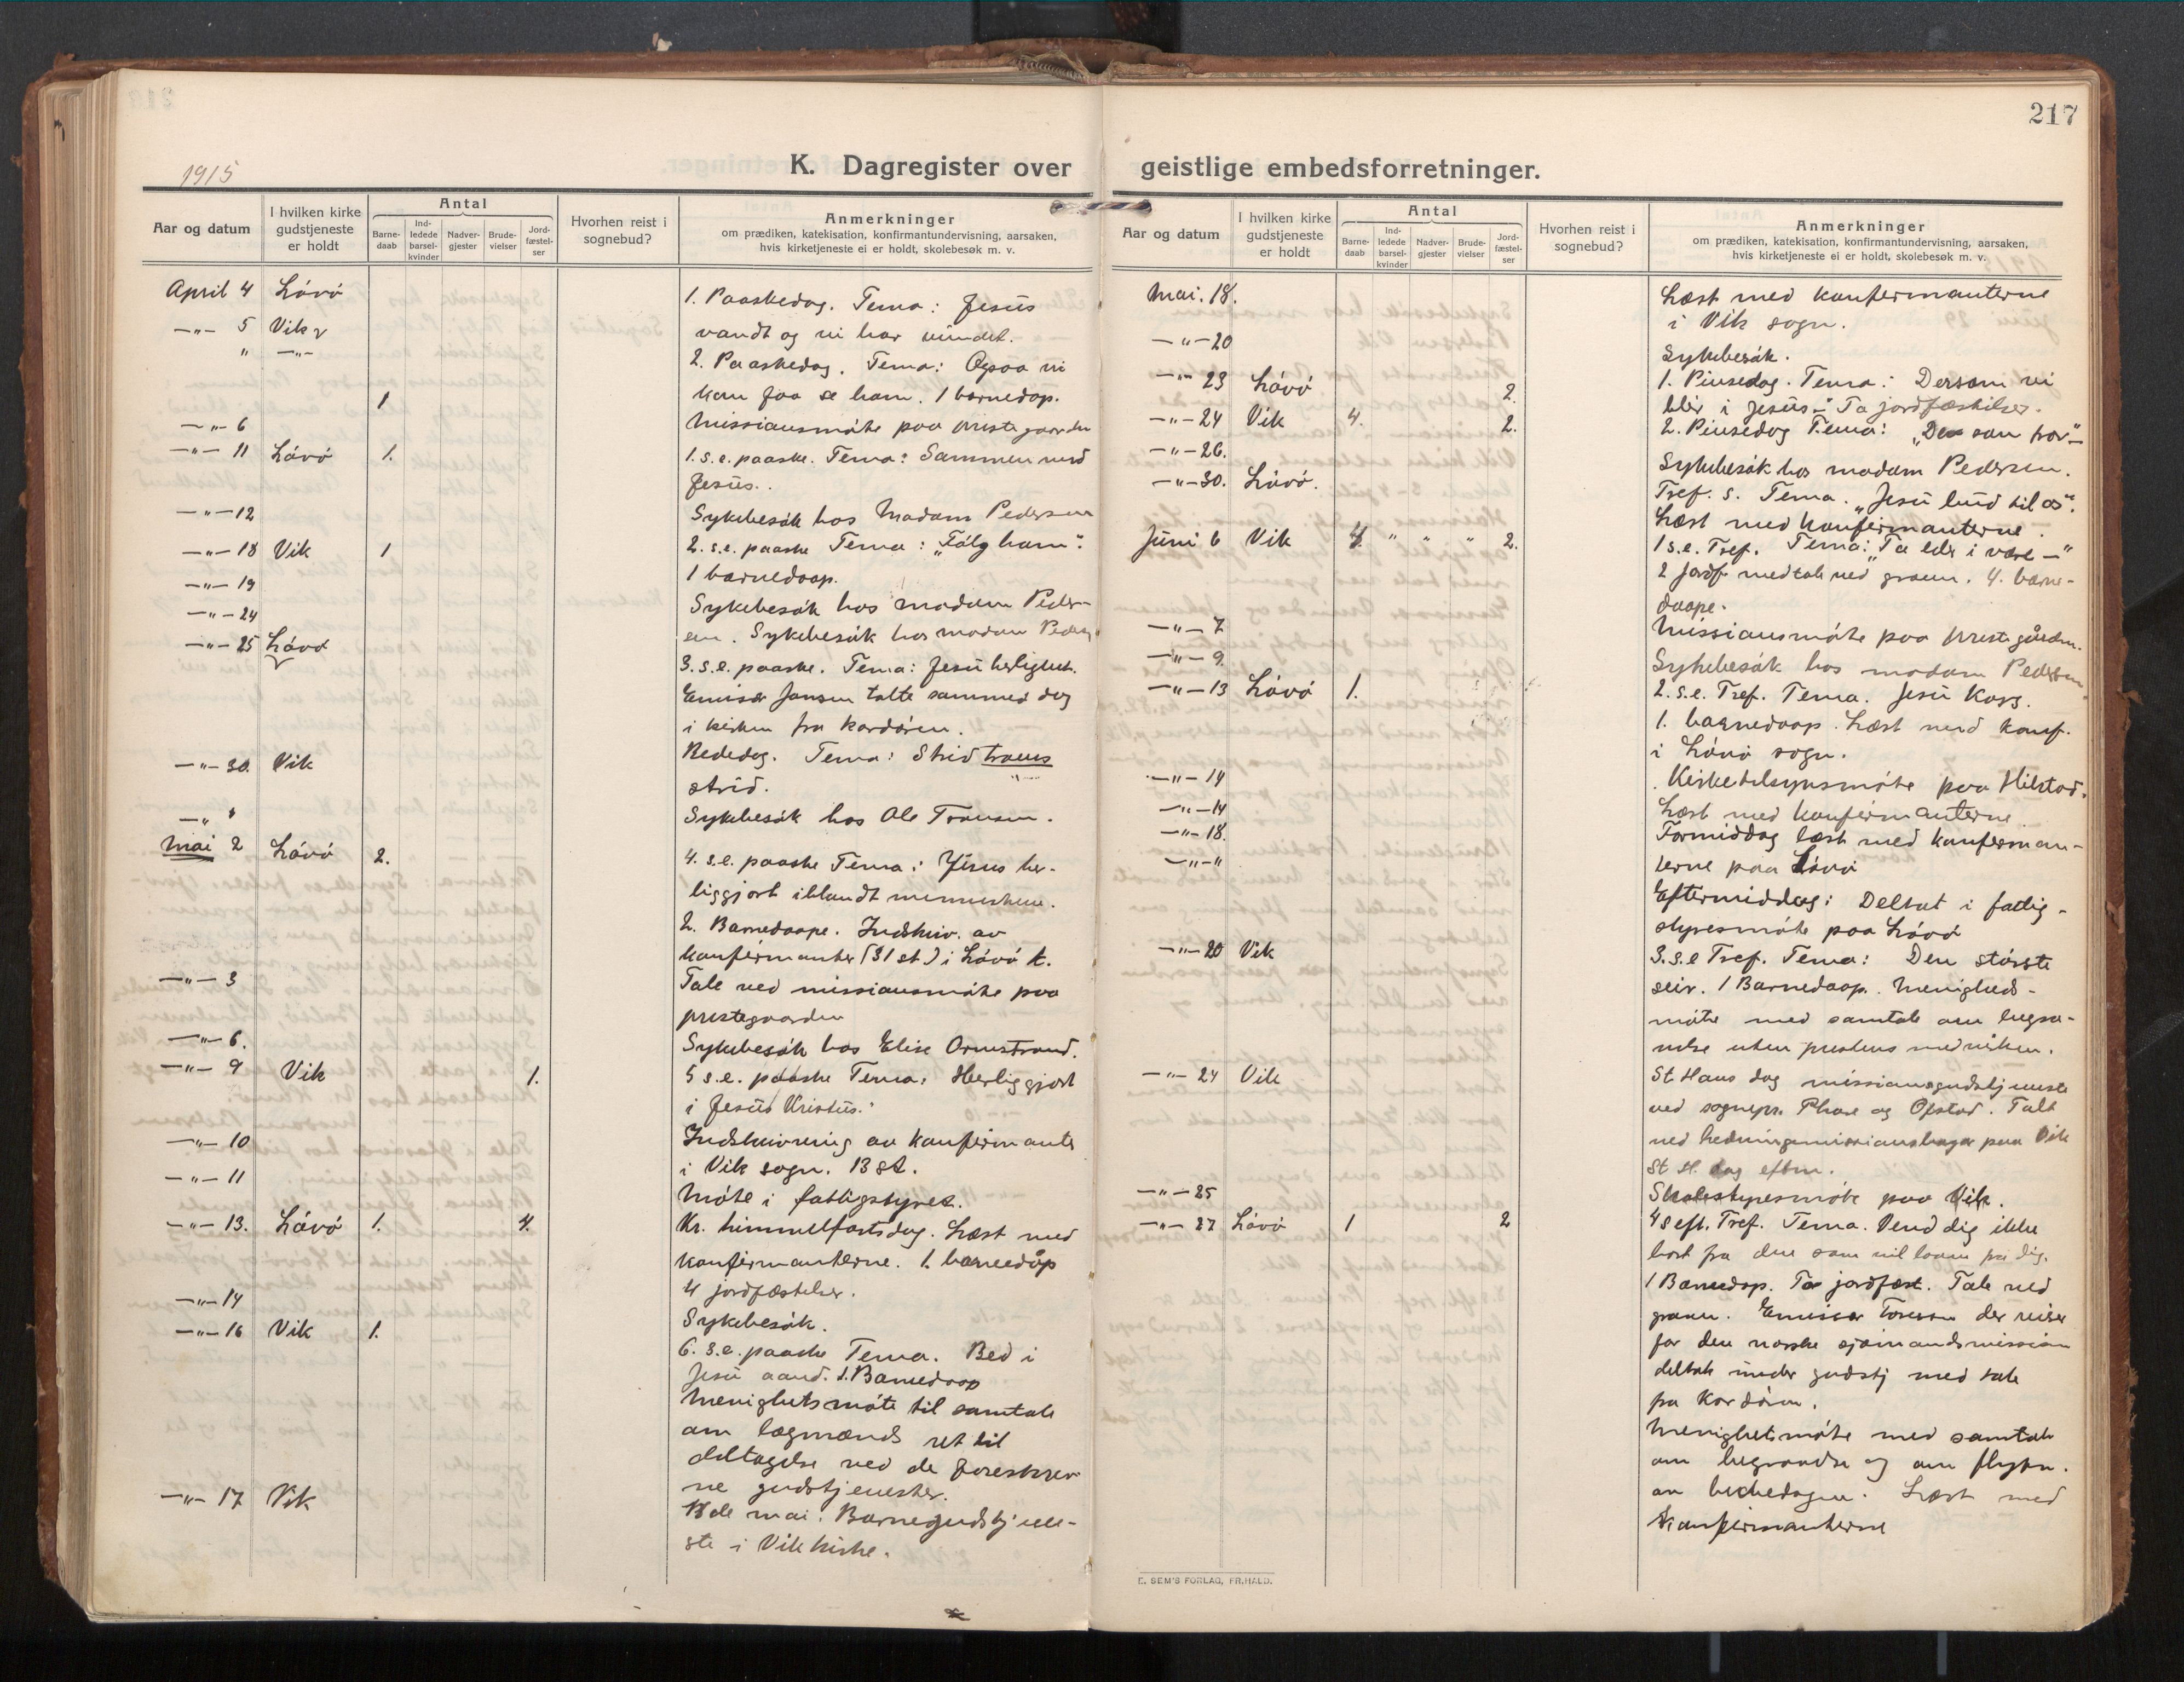 217
1915
K. Dagregister over geistlige embedsforretninger.
Aar og datum
I hvilken kirke gudstjeneste er holdt
Antal
Barne-daab
Ind-ledede barsel-kvinder
Nadver-gjester
Brude-vielser
Jord-fæstel-ser
Hvorhen reist i sognebud?
Anmerkninger
om prædiken, katekisation, konfirmantundervisning, aarsaken,
hvis kirketjeneste ei er holdt, skolebesøk m. v.
April 4 Lövö 1. Paaskedag. Tema: Jesus
vandt og vi har vundet.
-"- 5 Vik
2. Paaskedag. Tema: Ogsaa vi
" -"- 1 kan faa se ham. 1 barnedap.
-"- 6 Missionsmöte paa prestegaarden
-"- 11 Lövö 1. 1. s. e. paaske. Tema: Sammen med
Jesus.
-"- 12 Sykebesök hos Madam Pedersen
-"- 18 Vik 1 2. s. e. paaske Tema: "Fölg ham".
1 barnedaap.
-"- 19 Sykebesök hos madam Peder-
-"- 24 sen. Sykebesök hos madam Peders
-"- 25 Lövö 3. s. e. paaske. Tema: Jesu herlighet.
Emisær Jansen talte sammed dag
i kirken fra kordören.
-"- 30. Vik Bededag. Tema: Strid troens
strid.
-"- " Sykebesök hos Ole Fransen.
Mai 2 Lövö 2. 4. s. e. paaske Tema: Jesus her-
liggjort iblandt menneskene.
2. Barnedaape. Indskriv. av
konfirmanter (31 st) i Lövö k.
-"- 3 Tale ved missionsmöte paa
prestegaarden
-"- 6. Sykebesök hos Elise Ormstrand.
-"- 9 Vik 1. 5 s. e. paaske Tema: Herliggjort
i Jesus Kristus.
-"- 10 Indskrivning av konfirmanter
i Vik sogn. 13 st.
-"- 11 Möte i fattigstyret.
-"- 13. Lövö 1. 4. Kr. himmelfartsdag. Læst med
konfirmanterne. 1. barnedåp
4 jordfæstelser.
-"- 14 Sykebesök.
-"- 16 Vik 1. 6. s. e. paaske Tema. Bed i
Jesu aand. 1. Barnedaap
Menighetsmöte til samtale
om lægmænds ret til
deltagelse ved de foreskrev-
ne gudstjenester.
-"- 17 Vik 17de mai. Barnegudstjene-
ste i Vik kirke.
Aar og datum
I hvilken kirke gudstjeneste er holdt
Antal
Barne-daab
Ind-ledede barsel-kvinder
Nadver-gjester
Brude-vielser
Jord-fæstel-ser
Hvorhen reist i sognebud?
Anmerkninger
om prædiken, katekisation, konfirmantundervisning, aarsaken,
hvis kirketjeneste ei er holdt, skolebesøk m. v.
Mai. 18. Læst med konfirmanterne
i Vik sogn.
-"- 20 Sykebesök.
-"- 23 Lövö 2. 1. Pinsedag. Tema: Dersom vi
blir i Jesus - To jordfæstelser.
-"- 24 Vik 4. 2. 2. Pinsedag Tema: "Den som tror -"
-"- 26. Sykebesök hos madam Pedersen.
-"- 30. Lövö. Tref. s. Tema. "Jesu bud til os".
Læst med konfirmanterne.
Juni 6 Vik 4. " " " 2. 1 s. e. Tref. Tema: "Ta eder i vare -"
2 jordf. med tale ved graven. 4. barne-
daape.
-"- 7 Missionsmöte paa prestegården.
-"- 9. Sykebesök hos madam Pedersen
-"- 13 Lövö 1. 2. s. e. Tref. Tema. Jesu Kors.
1. barnedaap. Læst med konf.
i Lövö sogn.
-"- 14 Kirketilsynsmöte paa Hilstad.
-"- 14 Læst med konfirmanterne
-"- 18. Formiddag læst med konfirman-
terne paa Lövö
-"- " Eftermiddag: Deltat i fattig-
styresmöte paa Lövö
-"- 20 Vik 3. s. e Tref. Tema: Den störste
seir. 1 Barnedaap. Menigheds-
möte med samtale om begra-
velse uten prestens medvirken.
-"- 24 Vik St Hans dag missionsgudstjeneste
ved sognepr. og Ofstad. Talt
ved hedningemissionsbasar paa Vik
St H. dag eftm.
-"- 25 Skolestyresmöte paa Vik.
-"- 27 Lövö 1 2 4 s eft. Tref. Tema. Vend dig ikke
bort fra den som vil laane fra dig.
1 Barnedap. To jordfæst. Tale ved
graven. Emisær der reiser
for den norske sjömandsmission
deltok under gudstj med tale
fra Kordören.
Menighetsmöte med samtale
om begravelse og om flytn.
av bededagen. Læst med
konfirmanterne
E. SEM'S FORLAG, FR.HALD.